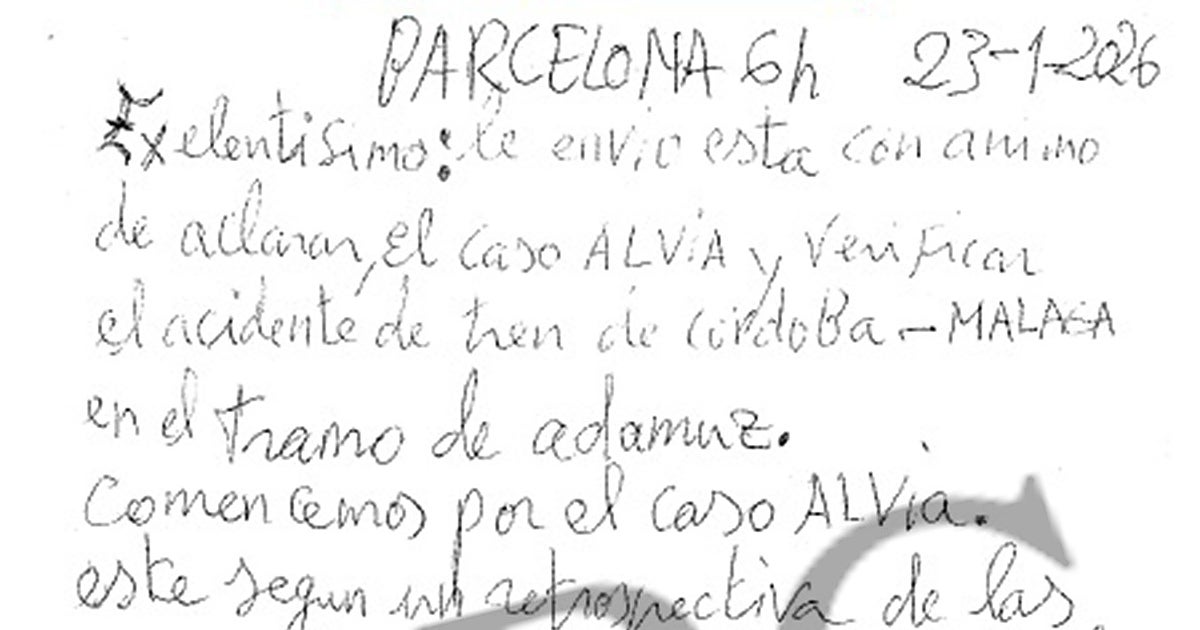 BARCELONA 6h 23-1-2026
Exelentisimo: le envio esta con animo
de aclarar, El caso ALViA y Verificar
el acidente de tren de cordoBa - MALAGA
en el tramo de adamuz.
Comencemos por el caso ALVia.
este segun un retrospectiva de las